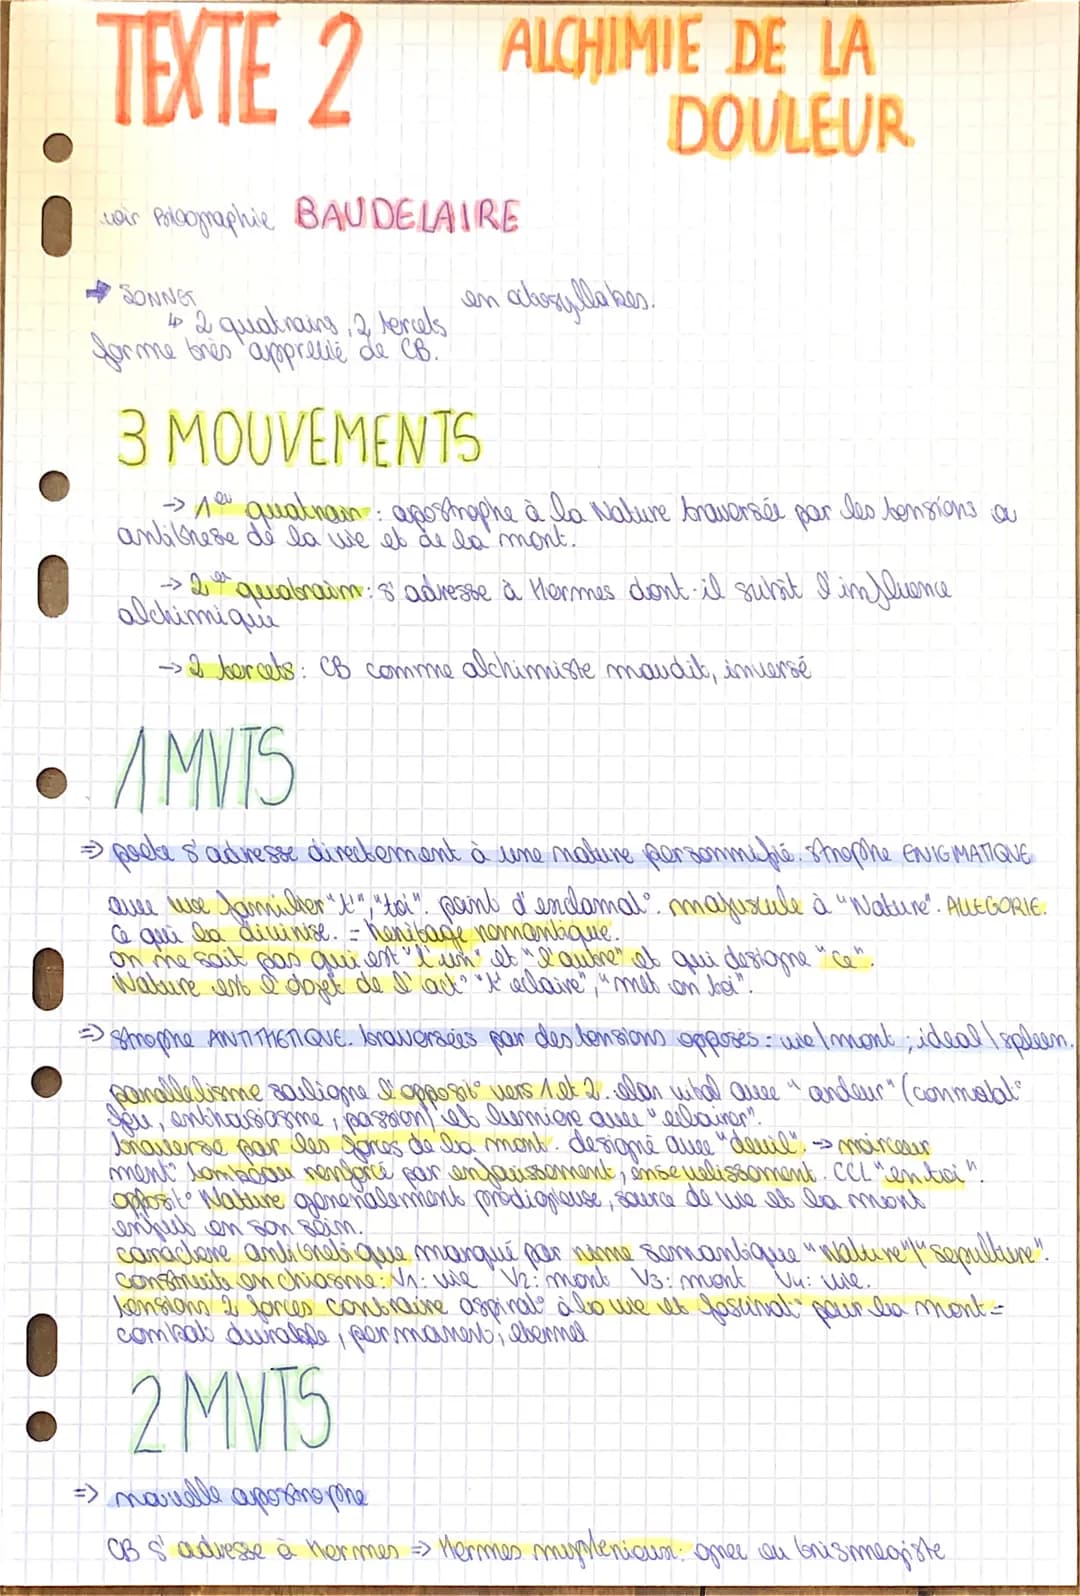 TEXTE 2
ALCHIMIE DE LA
DOULEUR
voir Biographie BAUDELAIRE
➡ SONNET en octosyllabes.
↳ 2 quatrains, 2 tercets
forme très apprécié de CB.
3 MOUVEMENTS
→ 1er quatrain : apostrophe à la Nature traversée par les tensions ou
antithèse de la vie et de la mort.
→ 2er quatrain : s'adresse à Hermes dont il subit l'influence
alchimique
→ 2 tercets : CB comme alchimiste maudit, inversé
1 MVTS
⇒ poete s'adresse directement à une nature personnifié. strophe ENIGMATIQUE
avec use familier "t'", "toi". point d'exclamat°. majuscule à "Nature". ALLEGORIE.
Ce qui la divinise. = heritage romantique.
on ne sait pas qui est "l'un" et "l'autre" et qui designe "ce".
Nature est l'objet de l'act° "t'eclaire", "met en toi".
⇒ strophe ANTITHETIQUE. traversées par des tensions opposés : vie/mort ; ideal\spleen.
parallelisme souligne l'opposit° vers 1 et 2. elan vital avec "ardeur" (connotat°
feu, enthousiasme, passion) et lumiere avec "eclairer".
traverse par les forces de la mort. designé avec "deuil". → noirceur
ment° tombeau renforcé par enfouissement, ensevelissement. CCL "en toi".
opposit° Nature generalement prodigieuse, source de vie et la mort
enfoui en son sein.
caractere antithetique marqué par rime semantique "Nature"/"sepulture".
construite en chiasme : V1 : vie V2 : mort V3 : mort V4 : vie.
tensions 2 forces contraire aspirat° à la vie et fascinat° pour la mort =
combat durable, permanent, eternel
2 MVTS
⇒ nouvelle apostrophe
CB s'adresse à Hermes ⇒ Hermes mysterieux : grec ou trismegiste